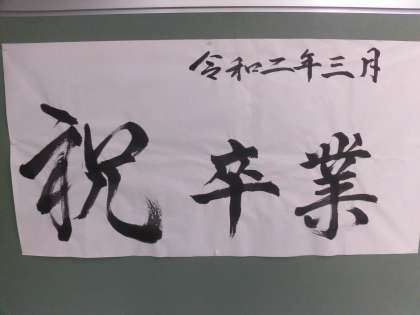 令和二年三月
祝卒業